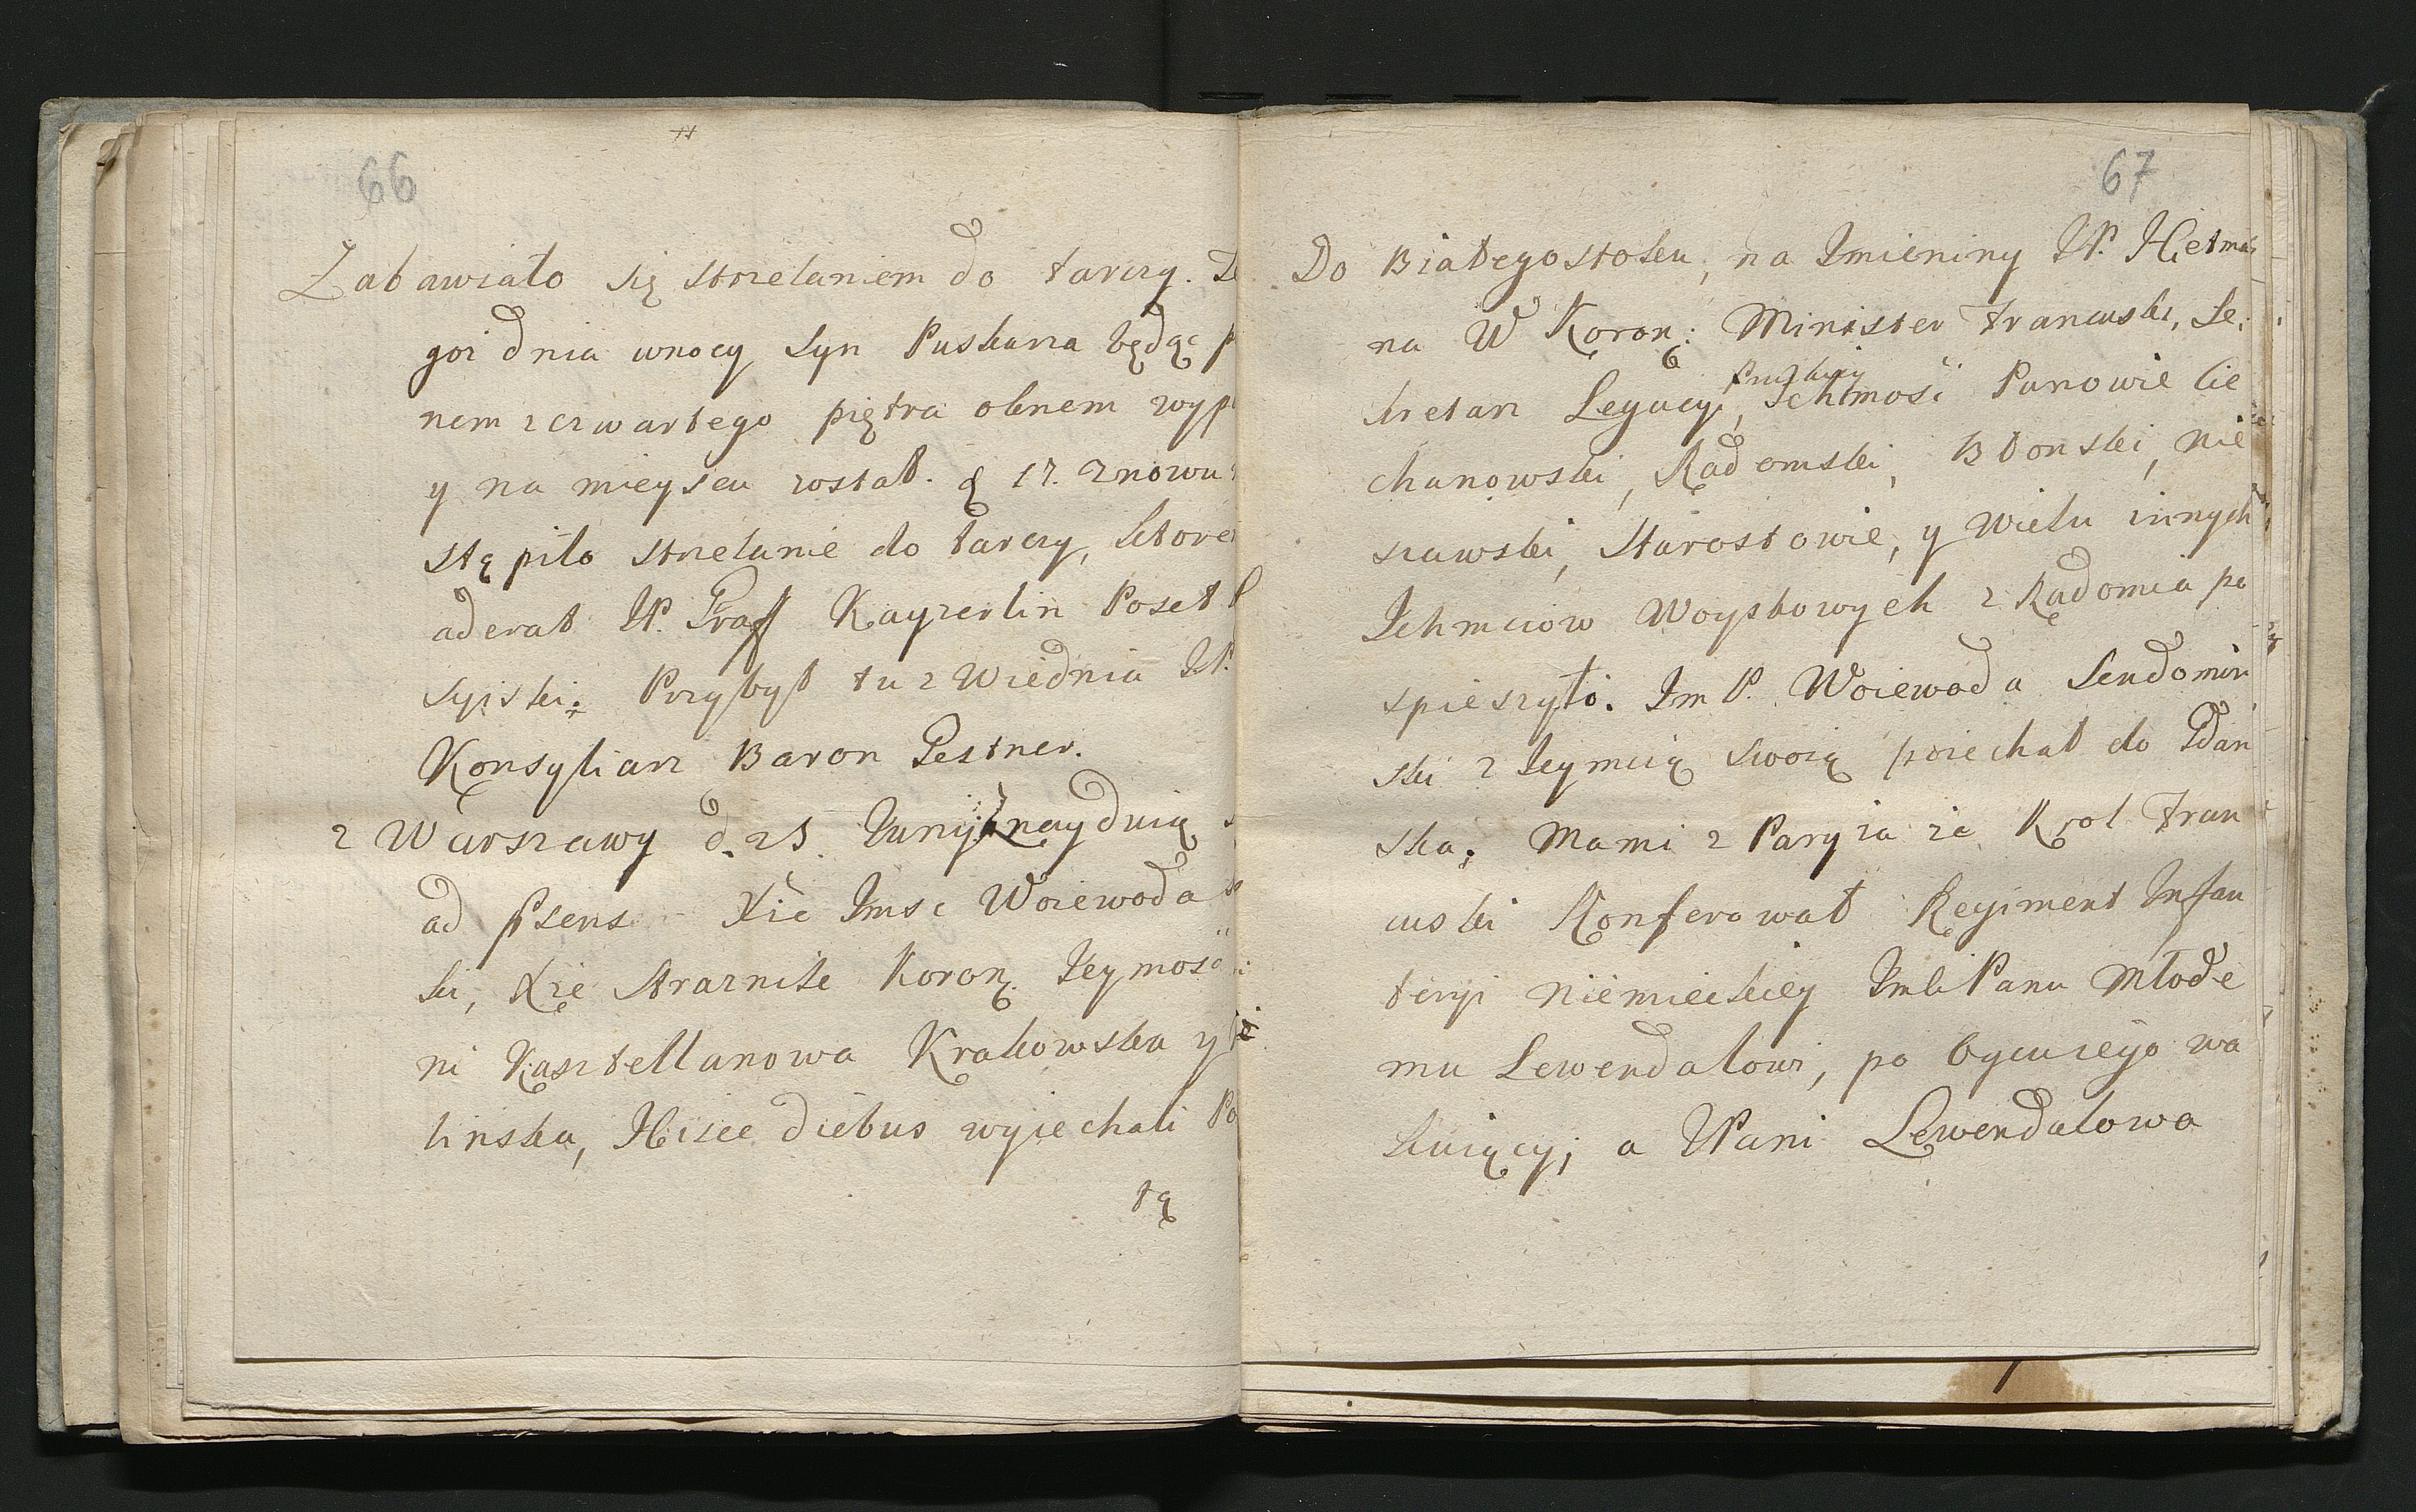 66
Zabawiało się strzelaniem do tarczy.
goż dnia wnocy Syn Puskarza będąc
nem z czwartego piętra oknem
y na mieyscu został. d. 17. Znowu
stąpiło strzelanie do tarczy,
aderat JP. Graff Kayzerlin Poseł
syiski. Przybył tu z Wiednia JP.
Konsyliarz Baron Pestner.
z Warszawy d. 25. Junij znayduią
ad Psens Xże Imsc Woiewoda
ki, Xże Strażnik Koron. Jeymość
ni Kasztellanowa Krakowska y
linska, Hisce diebus wyiechali
tą
67
Do Białegostoku, na Imieniny JP. Hetma
na W Koron: Minister Francuski, Se:
kretarz Legacyi Pruskiey, Ichmość Panowie Cie
chanowski, Radomski, Błonski, Nie
szawski, Starostowie, y wielu innych
Ichmciow Woyskowych z Radomia po
spieszyło. Im P. Woiewoda Sendomir
ski z Jeymcią Swoią poiechał do Gdań
ska. Mamy z Paryża że Krol Fran
cuski Konferował Regiment Infan
teryi Niemieckiey Panu Młode
mu Lewendalowi, po Oycu iego wa
kuiący; a JPani Lewendalowa